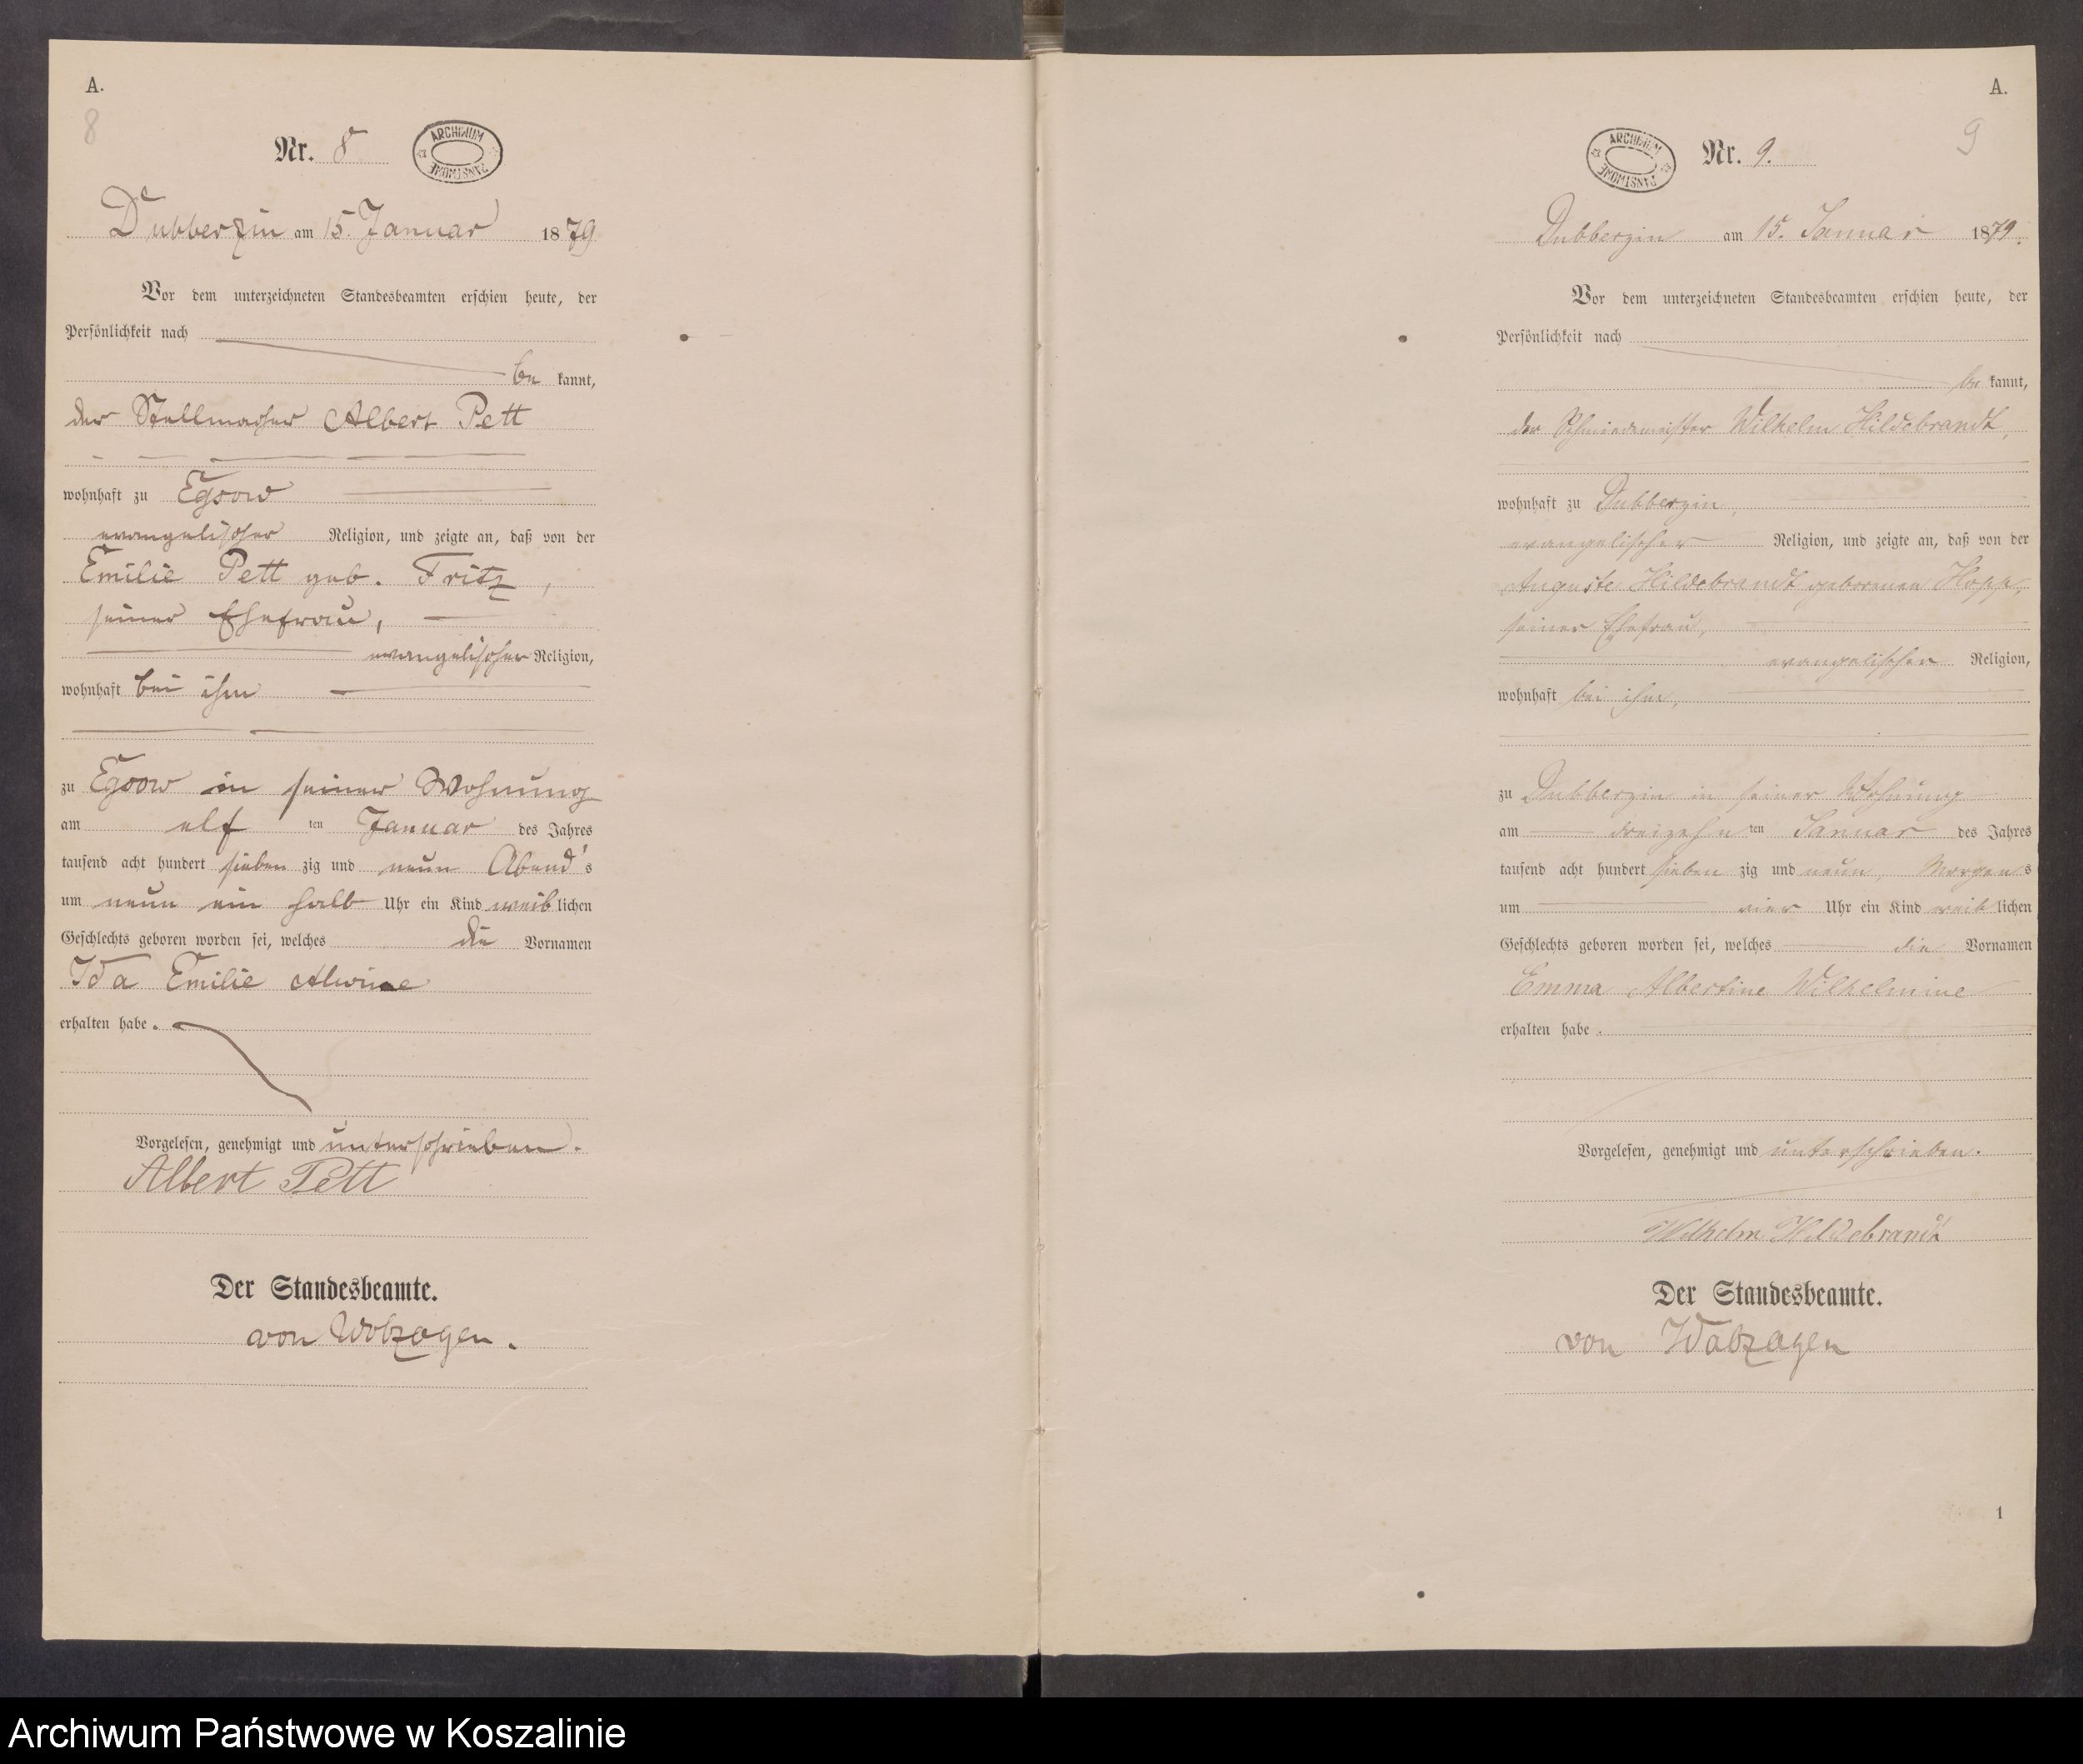 A.
8
Nr. 8
ARCHIWUM PAŃSTWOWE
Dubberzin am 15. Januar 1879
Vor dem unterzeichneten Standesbeamten erschien heute, der
Persönlichkeit nach
be kannt,
der Stellmacher Albert Pett
wohnhaft zu Egsow
evangelischer Religion, und zeigte an, daß von der
Emilie Pett geb. Fritz,
seiner Ehefrau,
evangelischer Religion,
wohnhaft bei ihm
zu Egsow in seiner Wohnung
am elf ten Januar des Jahres
tausend acht hundert sieben zig und neun Abend's
um neun ein halb Uhr ein Kind weiblichen
Geschlechts geboren worden sei, welches die Vornamen
Ida Emilie Alwine
erhalten habe.
Vorgelesen, genehmigt und unterschrieben.
Albert Pett
Der Standesbeamte.
von
A.
9
ARCHIWUM PAŃSTWOWE
Nr. 9.
Dubberzin am 15. Januar 1879.
Vor dem unterzeichneten Standesbeamten erschien heute, der
Persönlichkeit nach
be kannt,
der Schmiedemeister Wilhelm Hildebrandt,
wohnhaft zu Dubberzin,
evangelischer Religion, und zeigte an, daß von der
Auguste Hildebrandt geborenen Hopp,
seiner Ehefrau,
evangelischer Religion,
wohnhaft bei ihm,
zu Dubberzin in seiner Wohnung
am dreizehn ten Januar des Jahres
tausend acht hundert sieben zig und neun, Morgens
um vier Uhr ein Kind weiblichen
Geschlechts geboren worden sei, welches die Vornamen
Emma Albertine Wilhelmine
erhalten habe.
Vorgelesen, genehmigt und unterschrieben.
Wilhelm Hildebrandt
Der Standesbeamte.
von
1
Archiwum Państwowe w Koszalinie